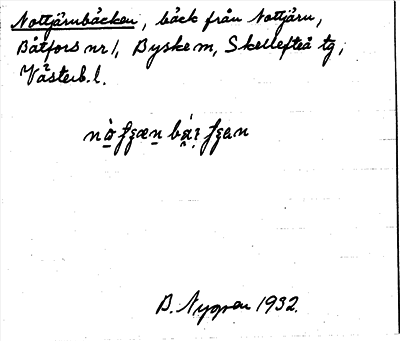 Nottjärnbäcken, bäck från Nottjärn,
Båtfors nr 1, Byske sn, Skellefteå tg,
Västerb. l.
B. Nygren 1932.